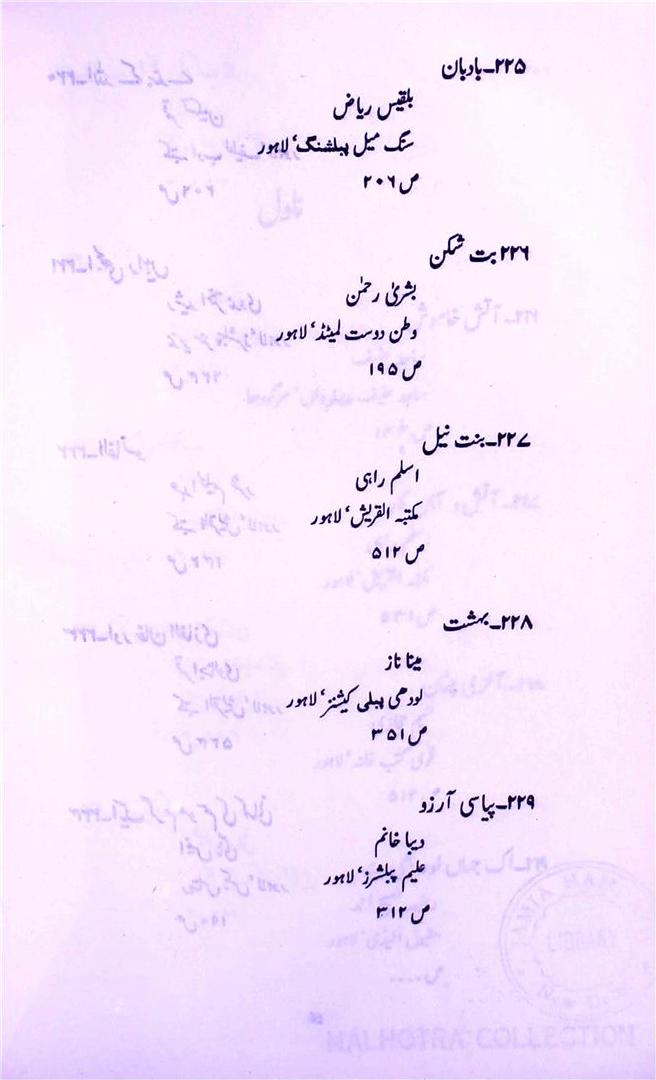 ۲۲۵۔بادبان
بلقیس ریاض
سنگ میل پبلشنگ، لاہور
ص ۲۰۶
۲۲۶بت شکن
بشریٰ رحمٰن
وطن دوست لمیٹڈ، لاہور
ص ۱۹۵
۲۲۷۔بنت نیل
اسلم راہی
مکتبہ القریش، لاہور
ص ۵۱۲
۲۲۸۔بہشت
مینا ناز
لودھی پبلی کیشنز، لاہور
ص ۳۵۱
۲۲۹۔پیاسی آرزو
دیبا خانم
علیم پبلشرز، لاہور
ص ۳۱۲
LIBRARY
MALHOTRA COLLECTION